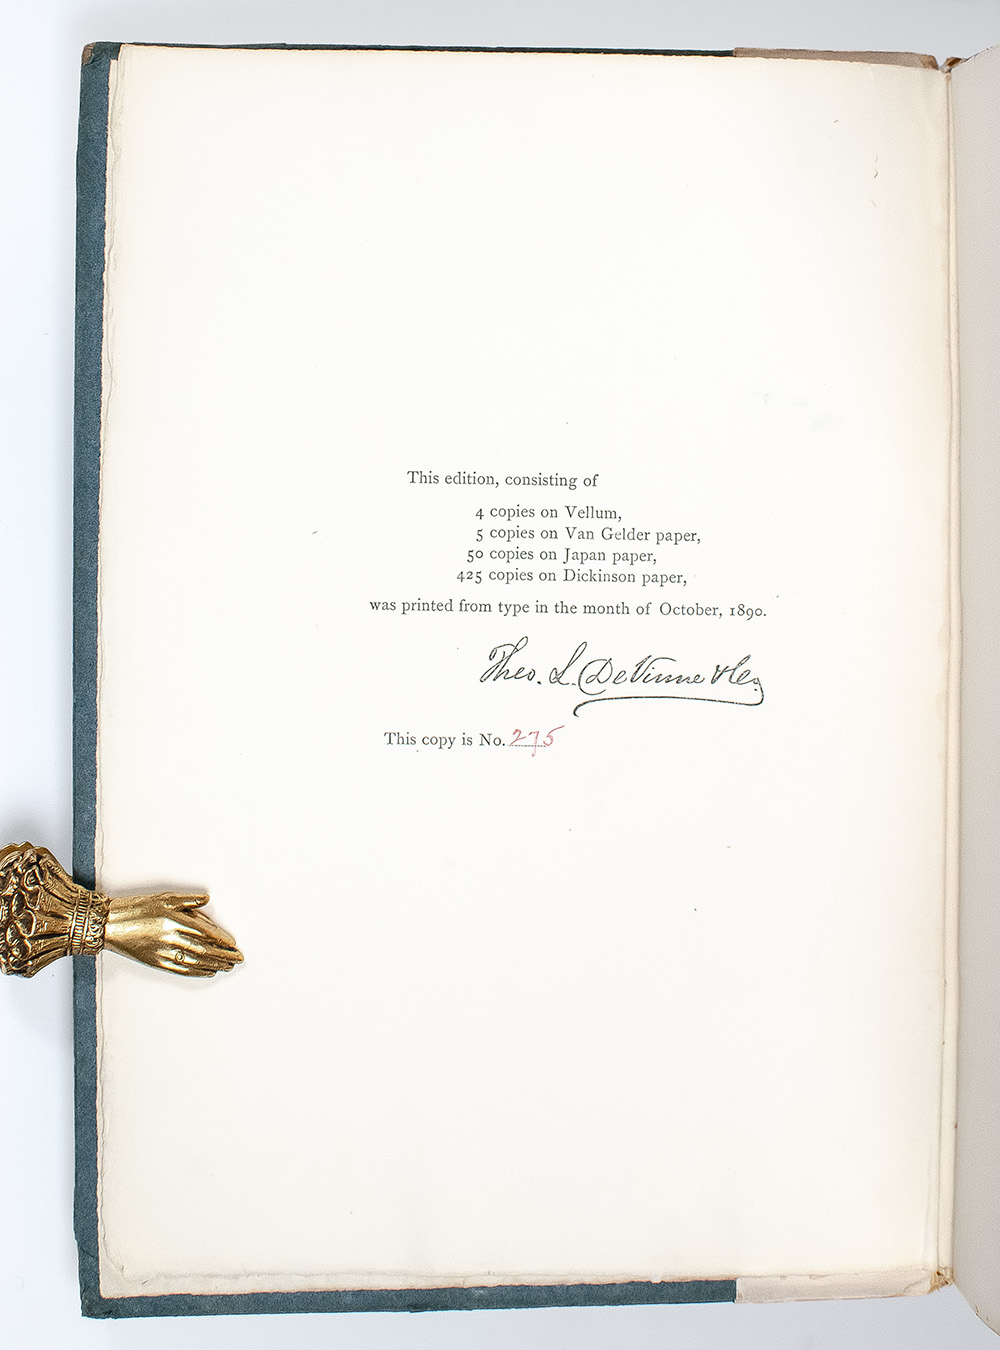 This edition, consisting of
4 copies on Vellum,
5 copies on Van Gelder paper,
50 copies on Japan paper,
425 copies on Dickinson paper,
was printed from type in the month of October, 1890.
Theo. L. De Vinne & Co.
This copy is No. 275